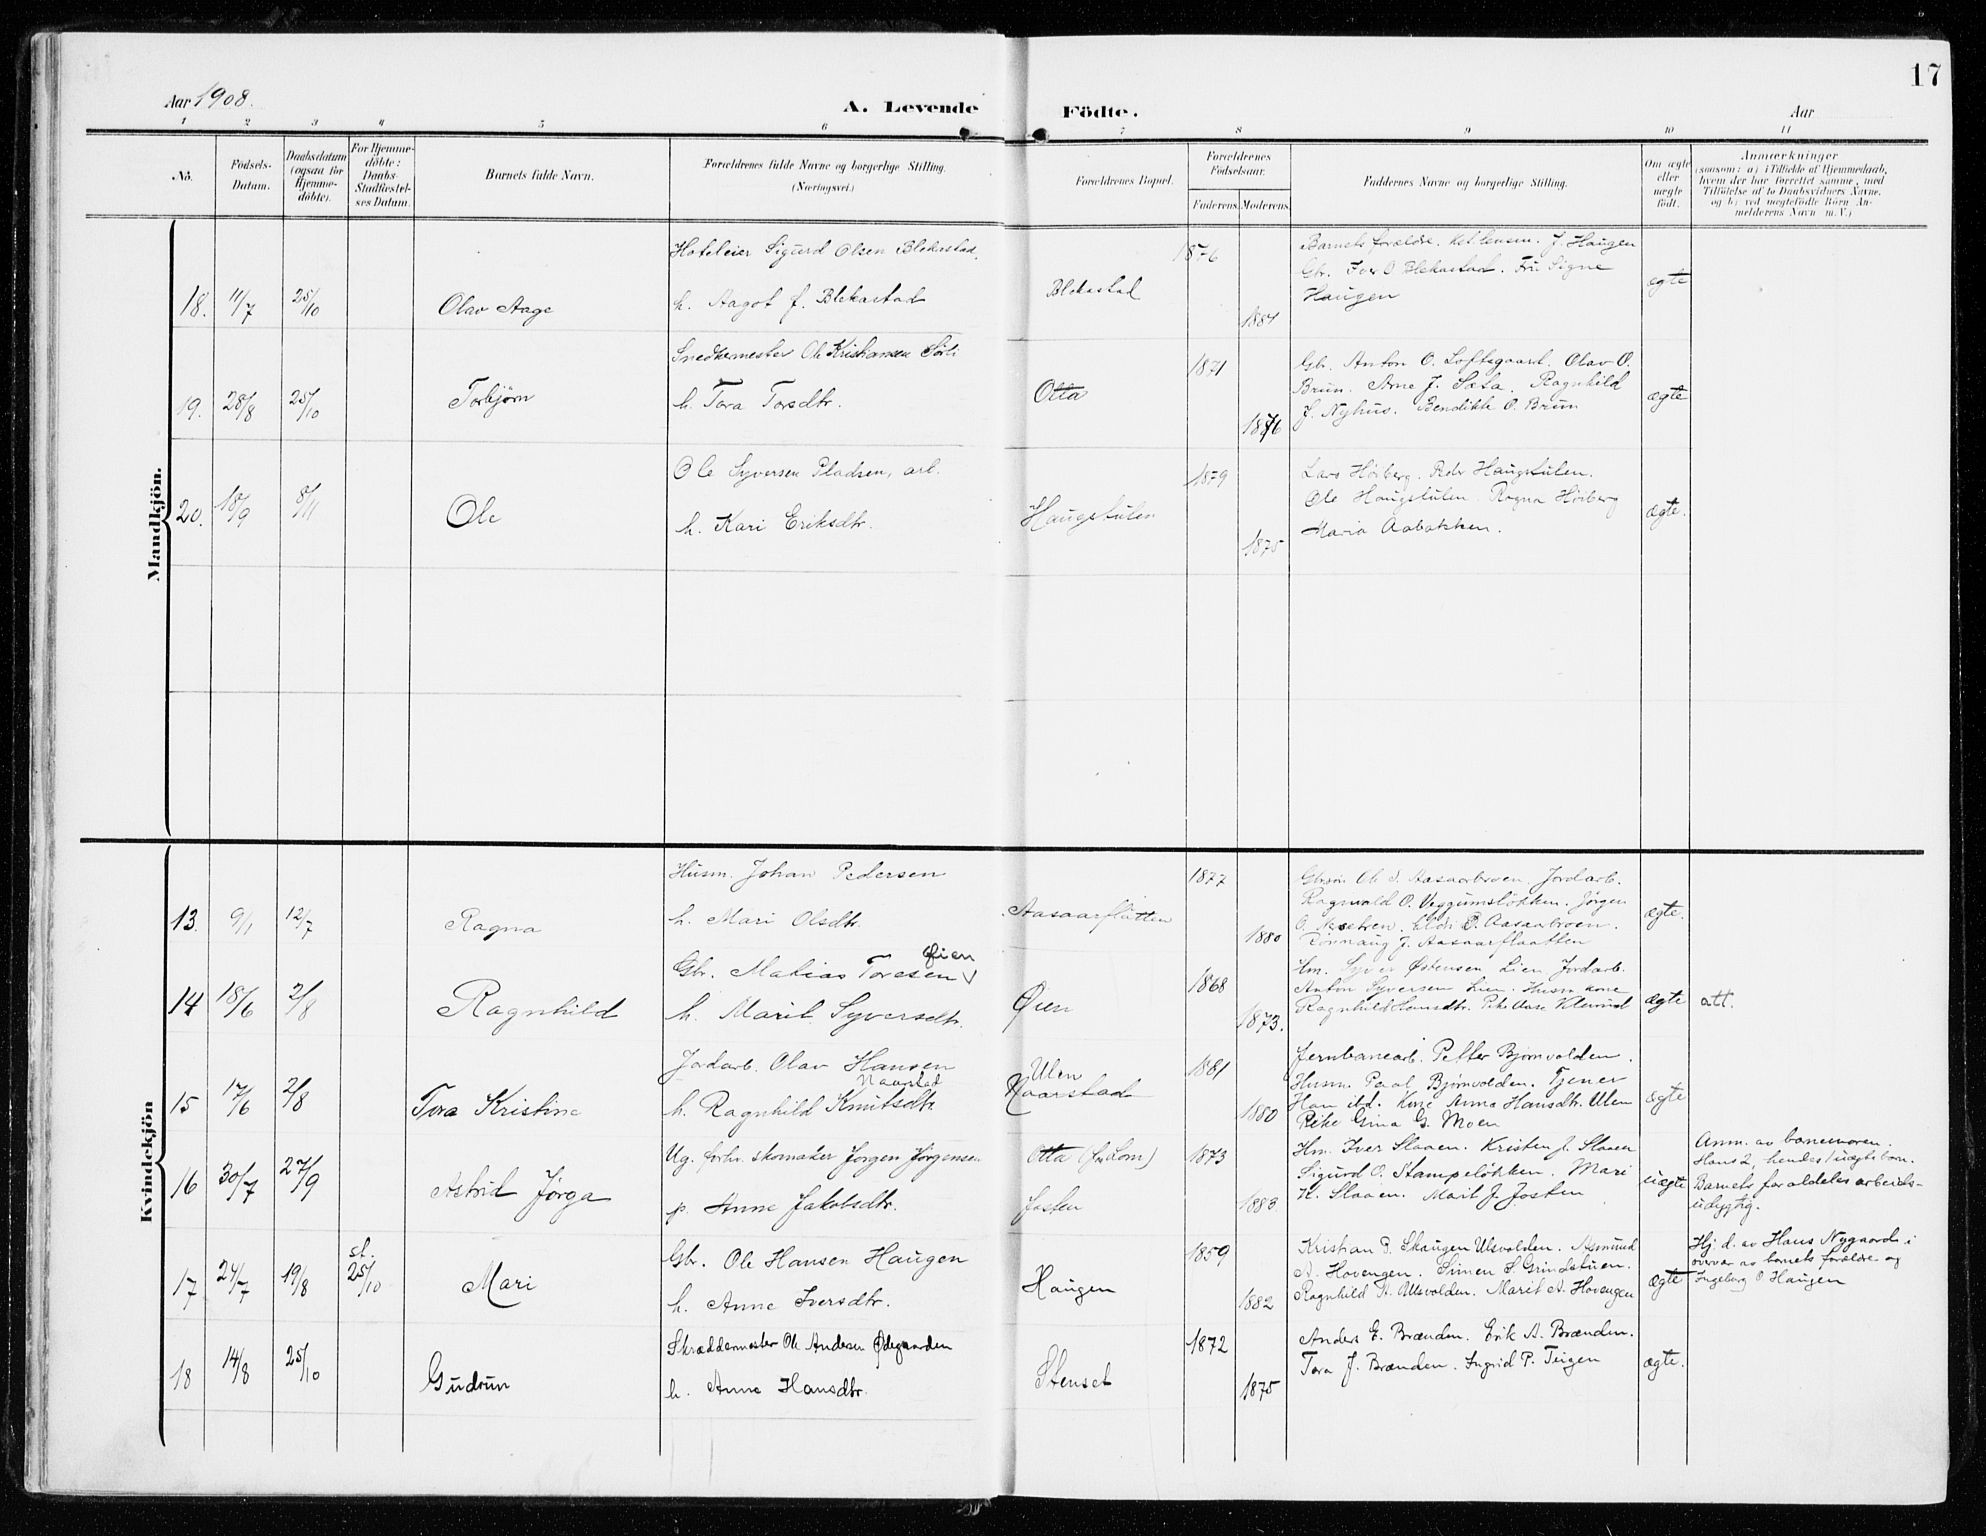 17
Aar 1908.
A. Levende Födte.
Aar
1 2 3 4 5 6 7 8 9 10 11
No.
Födsels-
Datum.
Daabsdatum
(ogsaa for
Hjemme-
döbte).
For Hjemme-
döbte:
Daabs-
Stadfæstel-
ses Datum.
Barnets fulde Navn.
Forældrenes fulde Navne og borgerlige Stilling.
(Næringsvei.)
Forældrenes Bopæl.
Forældrenes
Födselsaar.
Faderens. Moderens.
Faddernes Navne og borgerlige Stilling.
Om ægte
eller
uægte
födt.
Anmærkninger
(saasom: a) i Tilfælde af Hjemmedaab,
hvem der har forrettet samme, med
Tilföielse af to Daabsvidners Navne,
og b) ved uægtefödte Börn An-
melderens Navn m. V.)
Mandkjön.
18. 11/7 25/10 Olav Aage
Hoteleier Sigurd Olsen Blekastad,
h. Aagot f. Blekastad
Blekastad
1876
1884
Barnets forældre. J. Haugen
Gbr. Iver O Blekastad. Fru Signe
Haugen
ægte
19. 28/8 25/10 Torbjørn
Snedkermester Ole Kristiansen Sørli
h. Tora Torsdtr.
Otta
1871
1876
Gbr. Anton O. Loftsgaard. Olav O.
Brun. Arne J. Sæta. Ragnhild
J. Nyhus. Bendikte O. Brun
ægte
20. 18/9 8/11 Ole
Ole Syversen Pladsen, arb.
h. Kari Eriksdtr.
Haugstulen
1879
1875
Lars Høiberg. Peder Haugstulen.
Ole Haugstulen. Ragna Høiberg
Maria Aabakken.
ægte.
Kvindekjön
13. 9/1 12/7 Ragna
Husm. Johan Pedersen
h. Mari Olsdtr.
Aasaarflatten
1877
1880
Gbrsøn Ole S. Aasaarbroen. Jordarb.
Ragnvald O. Veggumsløkken. Jörgen
O. P. Aasaarbroen.
Rønnaug J. Aasaarflaatten
ægte.
14 18/6 2/8 Ragnhild
Øien
Gbr. Matias Toresen
h. Marit Syversdtr.
Øien
1868
1873.
Hm. Syver Østensen Lien. Jordarb.
Anton Syversen Lien. Husm kone
Ragnhild Hansdtr. Pike Aase Klemmd
ægte
att.
15 17/6 2/8 Tora Kristine
Jordarb. Olav Hansen
Naarstad
h. Ragnhild Knutsdtr.
Ulen
Naarstad
1881
1880
Jernbanearb. Petter Bjørnvolden.
Husm. Paal Bjørnvolden. Tjener
Han ibd. Kone Anna Hansdtr. Ulen
Pike Gina G. Moen
ægte
16 30/7 27/9 Astrid Jørga
Ug. forhv. skomaker Jørgen Jørgensen
p. Anne Jakobsdtr.
Otta (fra Lom)
Josten
1873
1883.
Hm. Iver Slaaen. Kristen J. Slaaen
Sigurd O. Stampeløkken. Mari
K. Slaaen. Marit J. Josten
uægte
Anm. av barnemoren.
Hans 2, hendes 1 uægte barn.
Barnets forældeles arbeids-
udygtig.
17 24/7 19/8 st. 25/10 Mari
Gbr. Ole Hansen Haugen
h. Anne Iversdtr.
Haugen
1859
1882
Kristian P. Skaugen Ulsvolden. Asmund
A. Hovengen. Simen S. Grindstuen.
Ragnhild H. Ulsvolden. Marit A. Hovengen
ægte
Hj. d. av Hans Nygaard i
overvær av barnets forældre og
Ingeborg O Haugen
18 14/8 25/10 Gudrun
Skræddermester Ole Andersen Ødegaarden
h. Anne Hansdtr.
Stenset
1872
1875
Anders E. Brænden. Erik A. Brænden.
Tora J. Brænden. Ingrid P. Teigen
ægte.